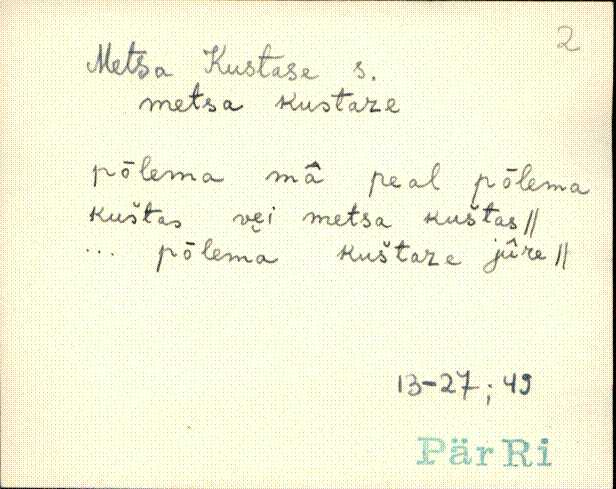 2
Metsa Kustase s.
metsa kustaze
pȭlema mâ peal pȭlema
kuštas vei metsa kuštas //
... pȭlema kuštaze jûre //
13-27; 49
PärRi